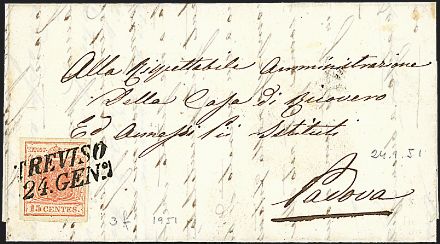 Alla Rispettabile Amministrazione
Della Casa di Ricovero
Ed Annessi Pii Istituti
Padova
TREVISO
24. GEN.
15 CENTES.
24.1.51